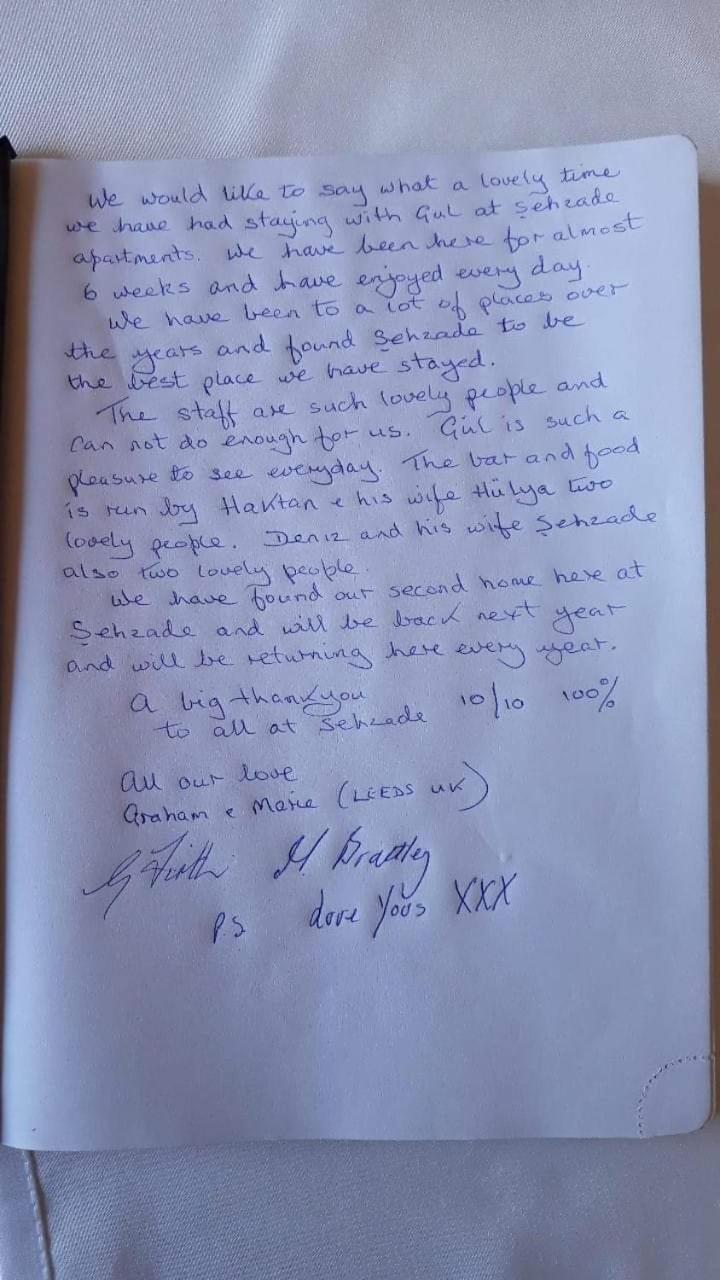 We would like to say what a lovely time
we have had staying with Gul at Şehzade
apartments. We have been here for almost
6 weeks and have enjoyed every day.
We have been to a lot of places over
the years and found Şehzade to be
the best place we have stayed.
The staff are such lovely people and
can not do enough for us. Gül is such a
pleasure to see everyday. The bar and food
is run by Haktan e his wife Hülya two
lovely people. Deniz and his wife Şehzade
also two lovely people.
We have found our second home here at
Şehzade and will be back next year
and will be returning here every year.
A big thankyou
to all at Sehzade 10/10 100%
All our love
Graham e Marie (LEEDS UK)
G Firth M. Bradley
P.S love YOUS XXX